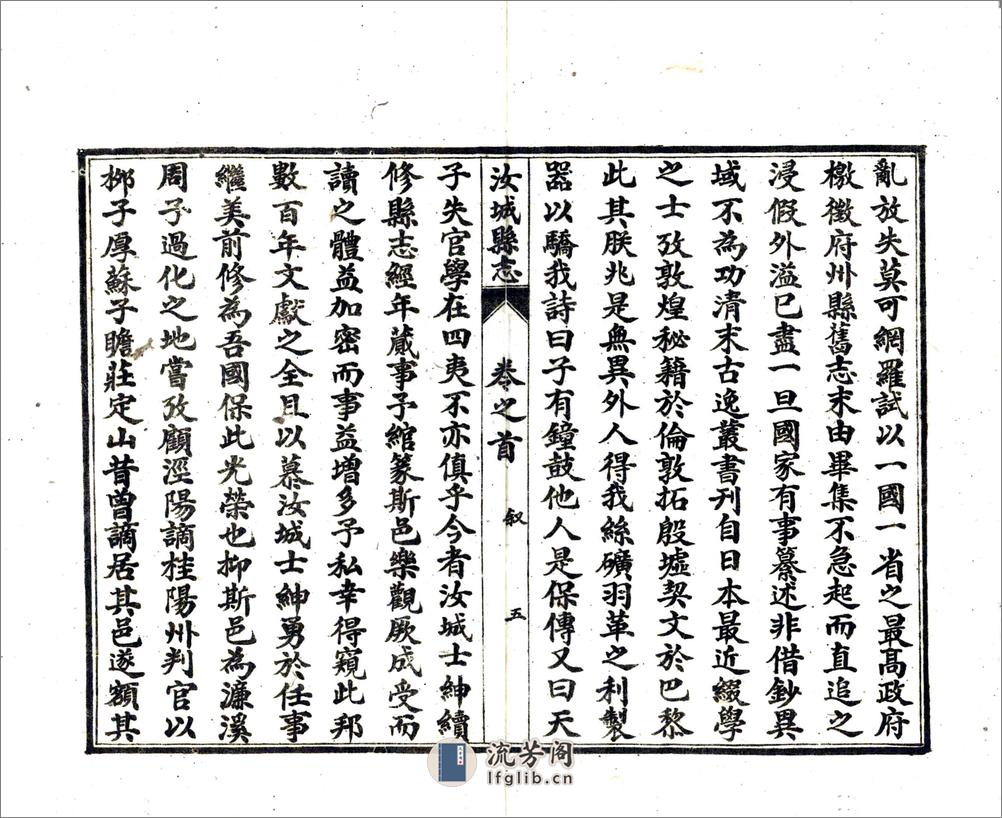 亂放失莫可網羅試以一國一省之最高政府
檄徵府州縣舊志末由畢集不急起而直追之
浸假外溢已盡一旦國家有事纂述非借鈔異
域不為功清末古逸叢書刊自日本最近綴學
之士攷敦煌秘籍於倫敦拓殷墟契文於巴黎
此其朕兆是無異外人得我絲礦羽革之利製
器以驕我詩曰子有鐘鼓他人是保傳又曰天
汝城縣志 卷之首 叙 五
子失官學在四夷不亦傎乎今者汝城士紳續
修縣志經年蕆事予綰篆斯邑樂觀厥成受而
讀之體益加密而事益增多予私幸得窺此邦
數百年文獻之全且以慕汝城士紳勇於任事
繼美前修為吾國保此光榮也抑斯邑為濂溪
周子過化之地嘗攷顧涇陽謫桂陽州判官以
柳子厚蘇子瞻莊定山昔曾謫居其邑遂額其
流芳阁
lfglib.cn